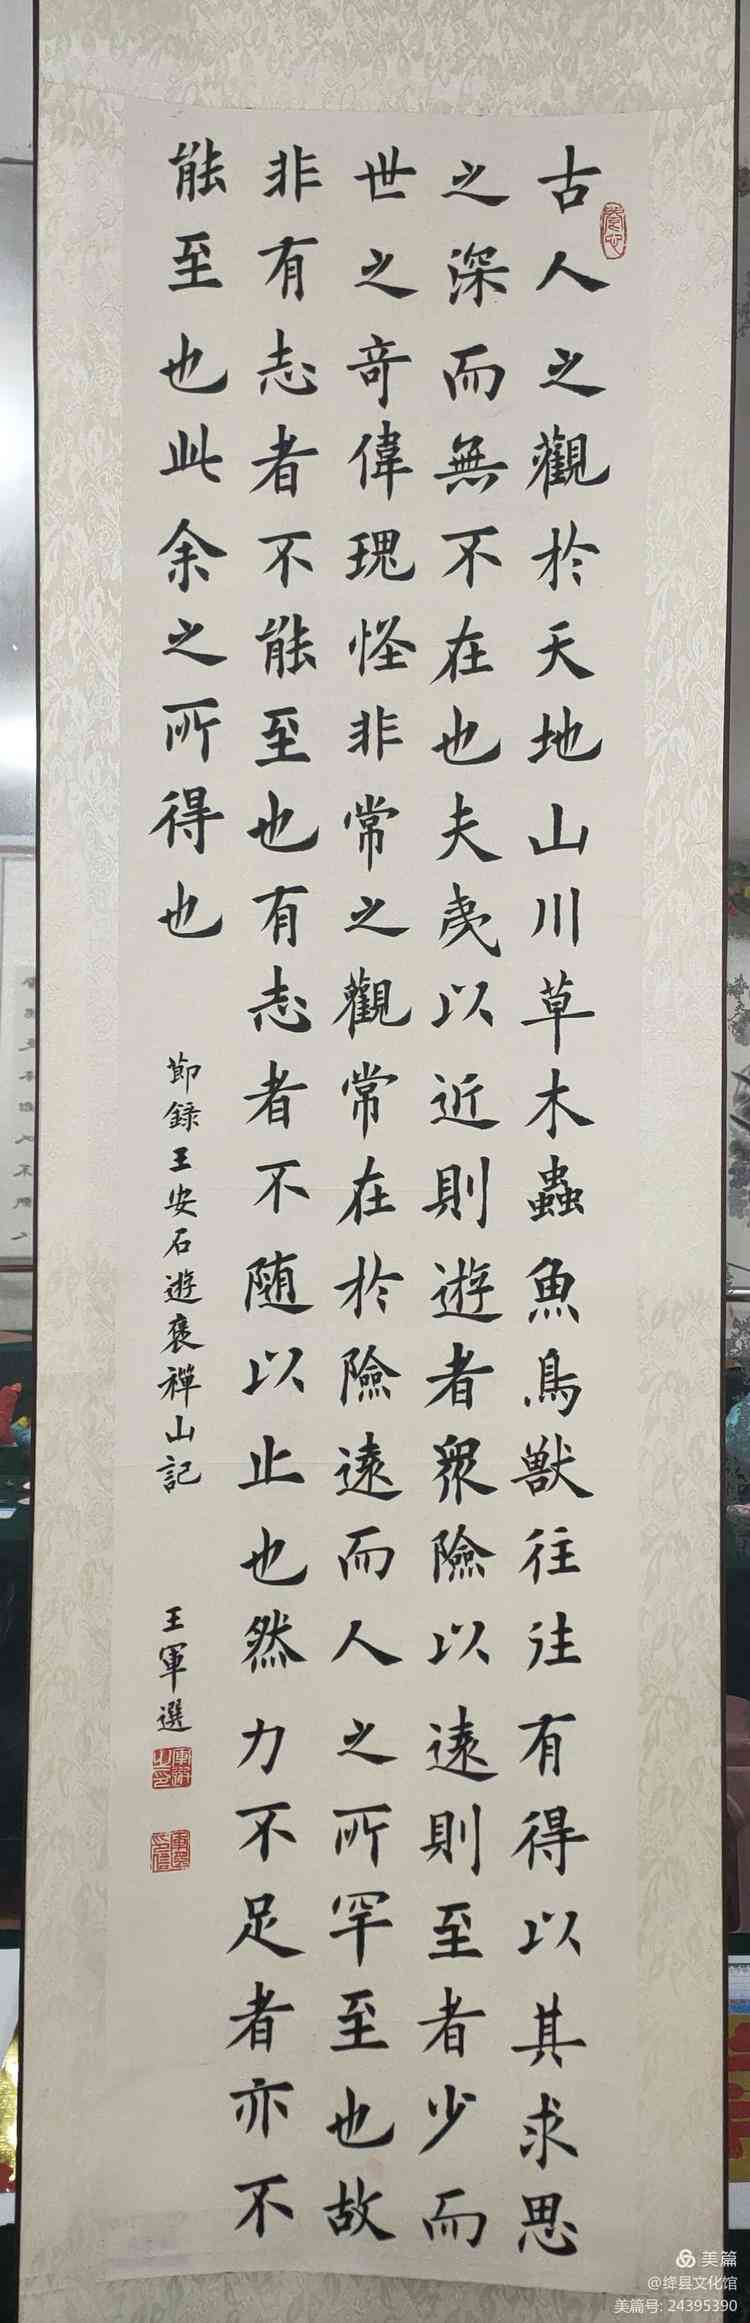 古人之觀於天地山川草木蟲魚鳥獸往往有得以其求思
之深而無不在也夫夷以近則遊者眾險以遠則至者少而
世之奇偉瑰怪非常之觀常在於險遠而人之所罕至也故
非有志者不能至也有志者不随以止也然力不足者亦不
能至也此余之所得也
節録王安石遊褒禪山記
王軍選
美篇
@绛县文化馆
美篇号: 24395390